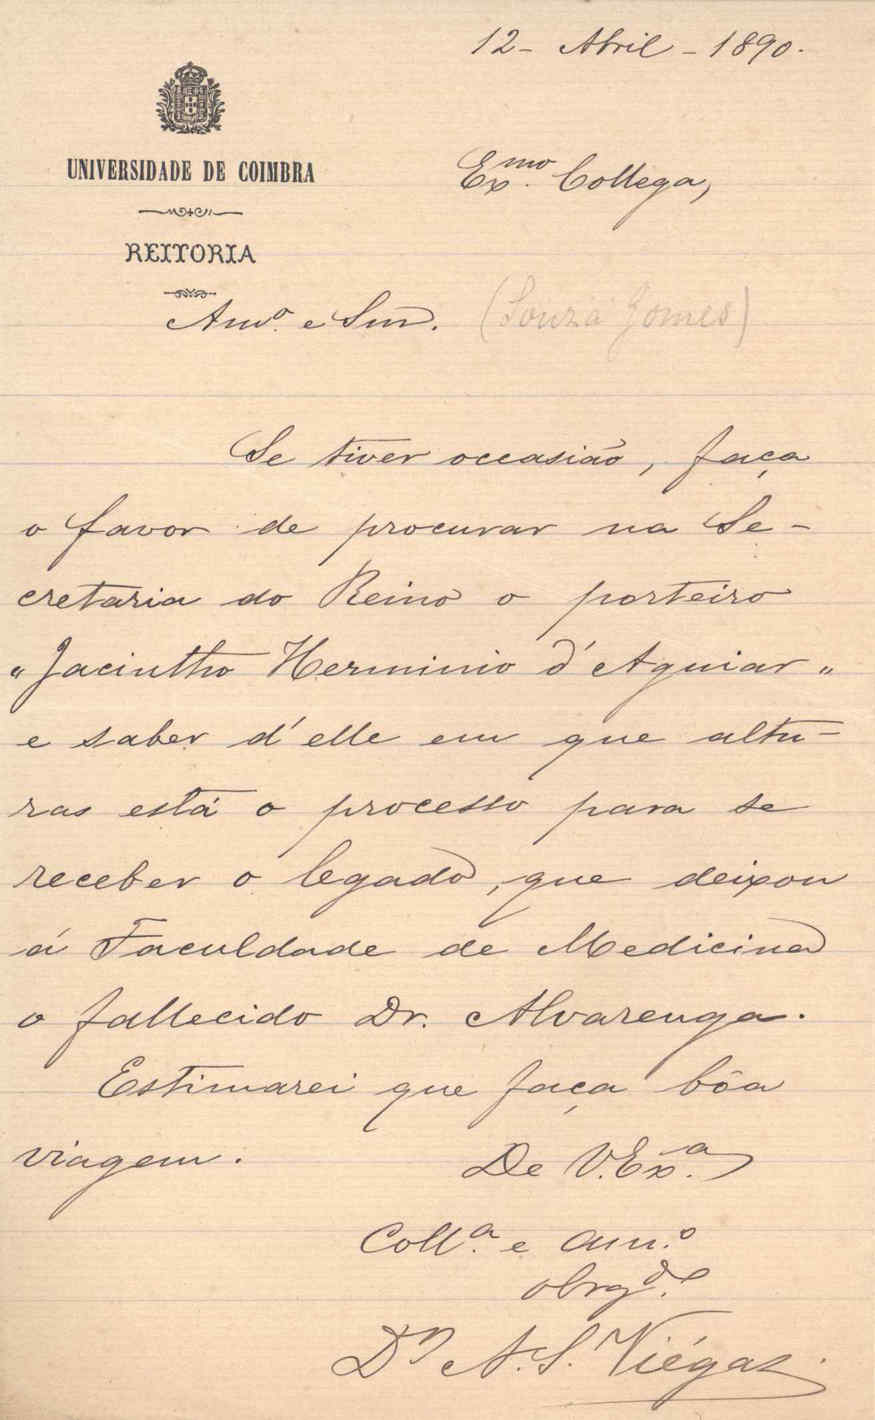 12 - Abril - 1890.
UNIVERSIDADE DE COIMBRA
REITORIA
Ex.mo Collega,
Am.o e Snr.
(Souza Gomes)
Se tiver occasião, faça
o favor de procurar na Se-
cretaria do Reino o porteiro
"Jacintho Herminio d'Aguiar"
e saber d'elle em que altu-
ras está o processo para se
receber o legado, que deixou
á Faculdade de Medicina
o fallecido Dr. Alvarenga.
Estimarei que faça bôa
viagem.
De V. Ex.a
Coll.a e am.o
obrg.do
Dr A. S. Viégas.